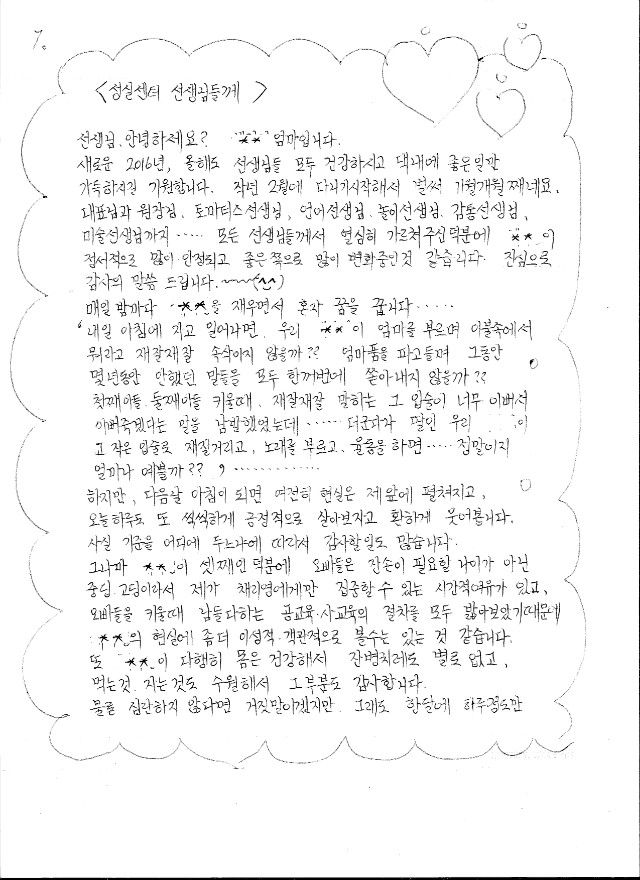 7.
<성실센터 선생님들께>
선생님, 안녕하세요? ** 엄마입니다.
새로운 2016년, 올해도 선생님들 모두 건강하시고 댁내에 좋은일만
가득하시길 기원합니다. 작년 2월에 다니기시작해서 벌써 개월째네요.
대표님과 원장님, 토마티스선생님, 언어선생님, 놀이선생님, 감통선생님,
미술선생님까지 ····· 모든 선생님들께서 열심히 가르쳐주신덕분에 **이
정서적으로 많이 안정되고 좋은쪽으로 많이 변화중인것 같습니다. 진심으로
감사의 말씀 드립니다.~~~(^^)
매일 밤마다 **을 재우면서 혼자 꿈을 꿉니다 ······
'내일 아침에 자고 일어나면, 우리 **이 엄마를 부르며 이불속에서
뭐라고 재잘재잘 속삭이지 않을까?? 엄마품을 파고들며 그동안
몇년동안 안했던 말들을 모두 한꺼번에 쏟아내지 않을까??
첫째아들, 둘째아들 키울때, 재잘재잘 말하는 그 입술이 너무 이뻐서
이뻐죽겠다는 말을 남발했었는데 ······ 더군다나 딸인 우리 이
고 작은 입술로 재잘거리고, 노래를 부르고, 율동을 하면 ····· 정말이지
얼마나 예쁠까?? , ············
하지만, 다음날 아침이 되면 여전히 현실은 제앞에 펼쳐지고,
오늘하루도 또 씩씩하게 긍정적으로 살아보자고 환하게 웃어봅니다.
사실 기준을 어디에 두느냐에 따라서 감사할일도 많습니다.
그나마 **이 셋째인덕분에 오빠들은 잔손이 필요할 나이가 아닌
중딩.고딩이라서 제가 채리영에게만 집중할 수 있는 시간적여유가 있고,
오빠들을 키울때 남들다하는 공교육·사교육의 절차를 모두 밟아보았기때문에
**의 현실에 좀더 이성적·객관적으로 볼수는 있는 것 같습니다.
또 **이 다행히 몸은 건강해서 잔병치레도 별로 없고,
먹는것, 자는것도 수월해서 그부분도 감사합니다.
물론 심란하지 않다면 거짓말이겠지만, 그래도 한달에 하루정도만